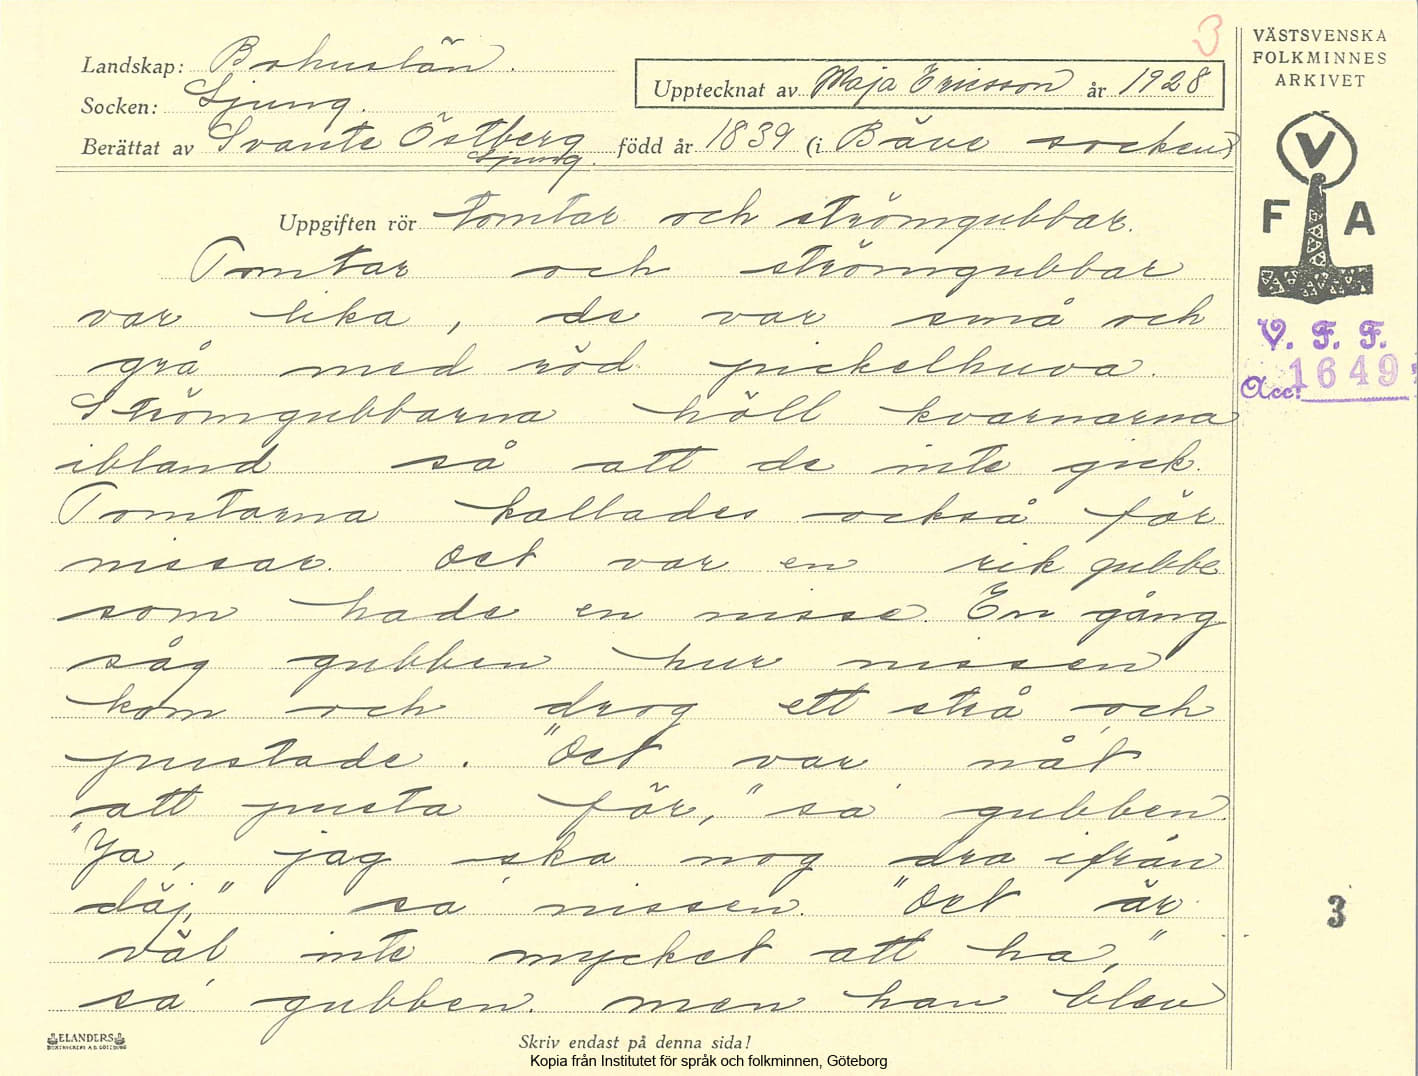 3
VÄSTSVENSKA
FOLKMINNES
ARKIVET
Landskap: Bohuslän.
Upptecknat av Maja Ericsson år 1928
Socken: Ljung.
Berättat av Svante Östberg född år 1839 (i Bäve socken)
Ljung.
V
F A
Uppgiften rör tomtar och strömgubbar.
Tomtar och strömgubbar
var lika, de var små och
grå med röd pickelhuva.
Strömgubbarna höll kvarnarna
ibland så att de inte gick.
Tomtarna kallades också för
nissar. Det var en rik gubbe
som hade en nisse. En gång
såg gubben hur nissen
kom och drog ett strå och
pustade. "Det var nåt
att pusta för," sa' gubben.
"Ja, jag ska nog dra ifrån
däj," sa' nissen. "Det är
väl inte mycket att ha,"
sa' gubben. men han blev
V. F. F.
Acc: 1649
3
ELANDERS
BOKTRYCKERI A.B. GÖTEBORG
Skriv endast på denna sida!
Kopia från Institutet för språk och folkminnen, Göteborg